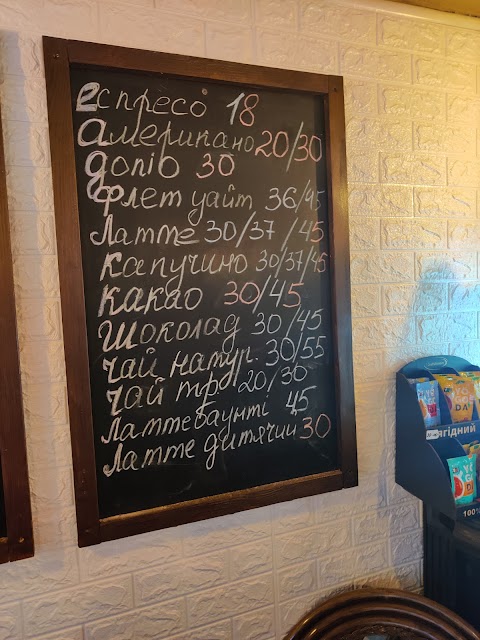 еспресо 18
американо 20/30
допіо 30
флет уайт 36/45
Латте 30/37/45
капучино 30/37/45
какао 30/45
шоколад 30/45
чай натур. 30/55
чай тр. 20/30
Латте баунті 45
Латте дитячий 30
ягідний
100%